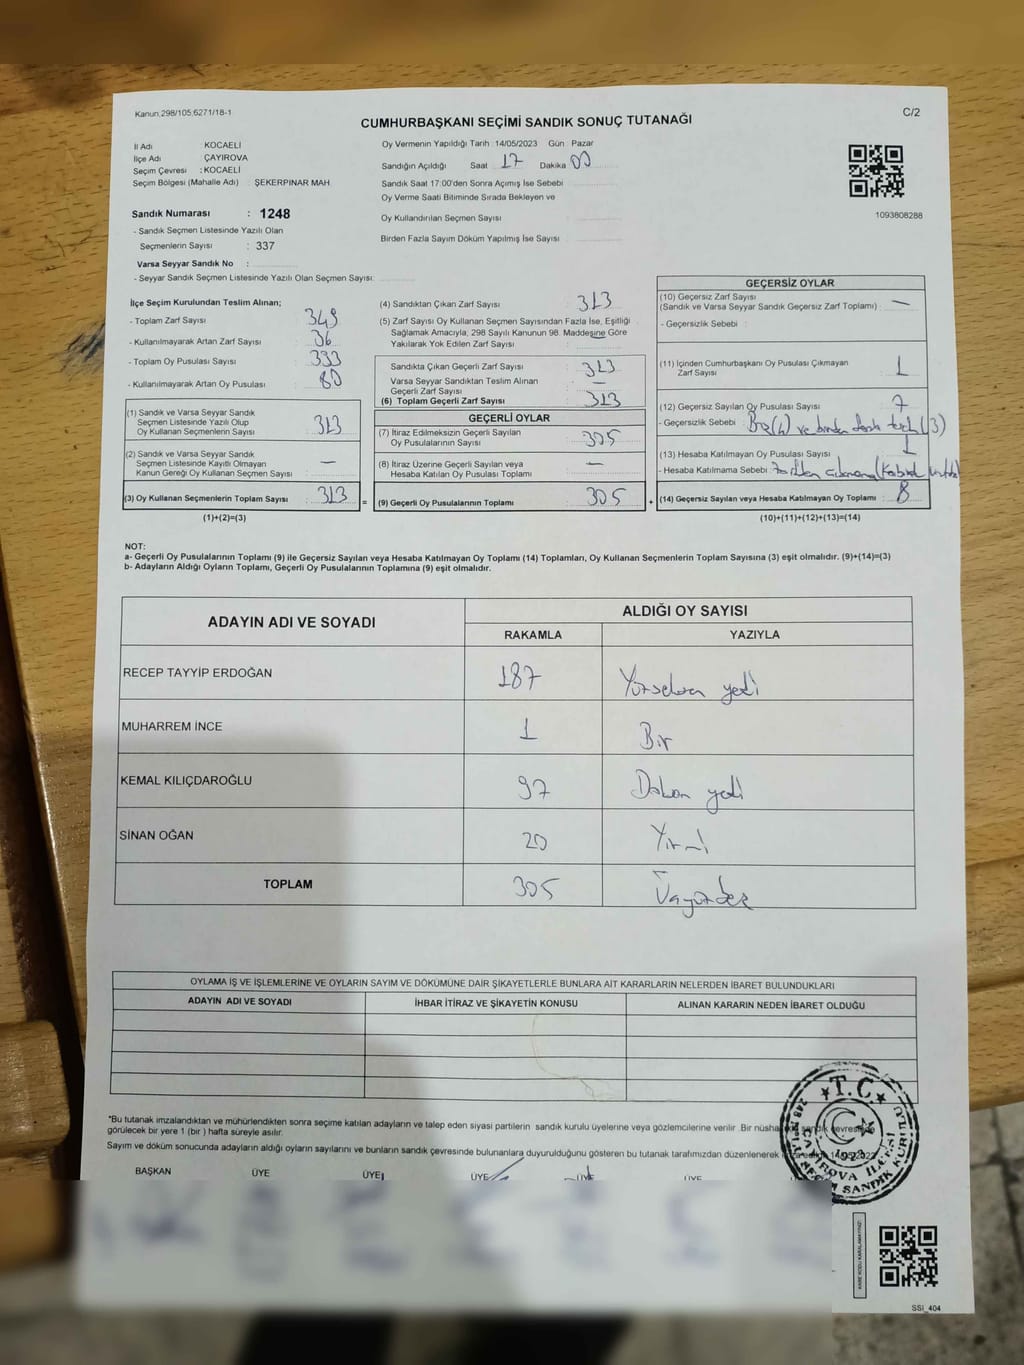 Kanun,298/105;6271/18-1
C/2
CUMHURBAŞKANI SEÇİMİ SANDIK SONUÇ TUTANAĞI
İl Adı KOCAELİ
İlçe Adı ÇAYIROVA
Seçim Çevresi : KOCAELİ
Seçim Bölgesi (Mahalle Adı) : ŞEKERPINAR MAH.
Sandık Numarası : 1248
- Sandık Seçmen Listesinde Yazılı Olan
Seçmenlerin Sayısı : 337
Varsa Seyyar Sandık No :
- Seyyar Sandık Seçmen Listesinde Yazılı Olan Seçmen Sayısı:
Oy Vermenin Yapıldığı Tarih 14/05/2023 Gün Pazar
Sandığın Açıldığı Saat 17 Dakika 00
Sandık Saat 17:00'den Sonra Açımış İse Sebebi
Oy Verme Saati Bitiminde Sırada Bekleyen ve
Oy Kullandırılan Seçmen Sayısı :
Birden Fazla Sayım Döküm Yapılmış İse Sayısı :
1093808288
İlçe Seçim Kurulundan Teslim Alınan;
- Toplam Zarf Sayısı : 349
- Kullanılmayarak Artan Zarf Sayısı : 36
- Toplam Oy Pusulası Sayısı : 333
- Kullanılmayarak Artan Oy Pusulası : 80
(1) Sandık ve Varsa Seyyar Sandık
Seçmen Listesinde Yazılı Olup
Oy Kullanan Seçmenlerin Sayısı : 313
(2) Sandık ve Varsa Seyyar Sandık
Seçmen Listesinde Kayıtlı Olmayan
Kanun Gereği Oy Kullanan Seçmen Sayısı : —
(3) Oy Kullanan Seçmenlerin Toplam Sayısı : 313 =
(1)+(2)=(3)
(4) Sandıktan Çıkan Zarf Sayısı : 313
(5) Zarf Sayısı Oy Kullanan Seçmen Sayısından Fazla İse, Eşitliği
Sağlamak Amacıyla, 298 Sayılı Kanunun 98. Maddesine Göre
Yakılarak Yok Edilen Zarf Sayısı :
Sandıkta Çıkan Geçerli Zarf Sayısı : 313
Varsa Seyyar Sandıktan Teslim Alınan
Geçerli Zarf Sayısı : —
(6) Toplam Geçerli Zarf Sayısı : 313
GEÇERLİ OYLAR
(7) İtiraz Edilmeksizin Geçerli Sayılan
Oy Pusulalarının Sayısı : 305
(8) İtiraz Üzerine Geçerli Sayılan veya
Hesaba Katılan Oy Pusulası Toplamı : —
(9) Geçerli Oy Pusulalarının Toplamı : 305 +
GEÇERSİZ OYLAR
(10) Geçersiz Zarf Sayısı
(Sandık ve Varsa Seyyar Sandık Geçersiz Zarf Toplamı) : —
- Geçersizlik Sebebi :
(11) İçinden Cumhurbaşkanı Oy Pusulası Çıkmayan
Zarf Sayısı : 1
(12) Geçersiz Sayılan Oy Pusulası Sayısı : 7
- Geçersizlik Sebebi : ve birden (3)
(13) Hesaba Katılmayan Oy Pusulası Sayısı : 1
- Hesaba Katılmama Sebebi :
(14) Geçersiz Sayılan veya Hesaba Katılmayan Oy Toplamı : 8
(10)+(11)+(12)+(13)=(14)
NOT:
a- Geçerli Oy Pusulalarının Toplamı (9) ile Geçersiz Sayılan veya Hesaba Katılmayan Oy Toplamı (14) Toplamları, Oy Kullanan Seçmenlerin Toplam Sayısına (3) eşit olmalıdır. (9)+(14)=(3)
b- Adayların Aldığı Oyların Toplamı, Geçerli Oy Pusulalarının Toplamına (9) eşit olmalıdır.
ADAYIN ADI VE SOYADI ALDIĞI OY SAYISI
RAKAMLA YAZIYLA
RECEP TAYYİP ERDOĞAN 187 Yüzseksen yedi
MUHARREM İNCE 1 Bir
KEMAL KILIÇDAROĞLU 97 Doksan yedi
SİNAN OĞAN 20 Yirmi
TOPLAM 305 Üçyüzbeş
OYLAMA İŞ VE İŞLEMLERİNE VE OYLARIN SAYIM VE DÖKÜMÜNE DAİR ŞİKAYETLERLE BUNLARA AİT KARARLARIN NELERDEN İBARET BULUNDUKLARI
ADAYIN ADI VE SOYADI İHBAR İTİRAZ VE ŞİKAYETİN KONUSU ALINAN KARARIN NEDEN İBARET OLDUĞU
*Bu tutanak imzalandıktan ve mühürlendikten sonra seçime katılan adayların ve talep eden siyasi partilerin sandık kurulu üyelerine veya gözlemcilerine verilir .Bir nüsha sandık çevresinde
görülecek bir yere 1 (bir ) hafta süreyle asılır.
Sayım ve döküm sonucunda adayların aldığı oyların sayılarını ve bunların sandık çevresinde bulunanlara duyurulduğunu gösteren bu tutanak tarafımızdan düzenlenerek
T.C.
ÇAYIROVA İLÇESİ
SEÇİM SANDIK KURULU
BAŞKAN ÜYE ÜYE ÜYE ÜYE ÜYE
SSI_404